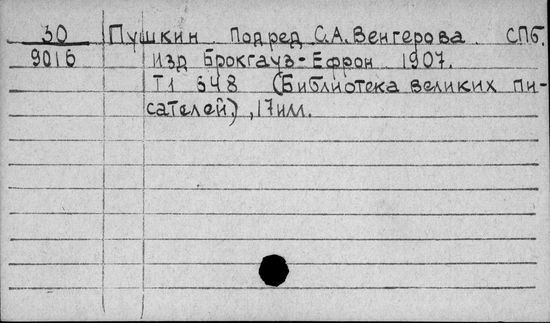 30 Пушкин Под ред С.А. Венгерова СПб.
9016 Изд Брокгауз-Ефрон 1907.
Т1 648 (Библиотека великих пи-
сателей), 17 илл.